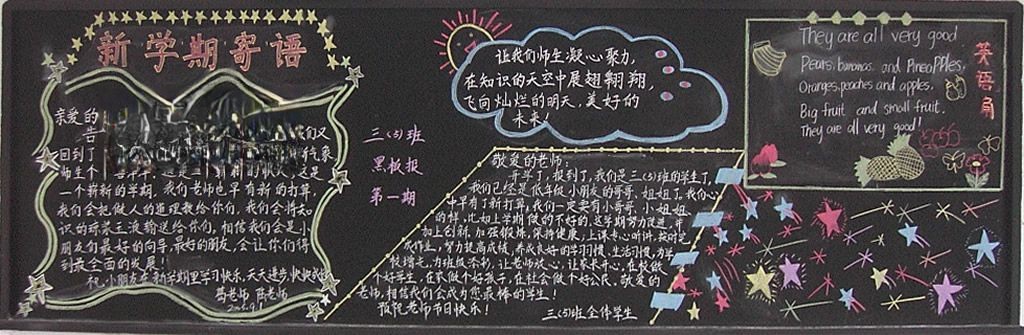 新学期寄语
亲爱的
告
们又
回到了
气象
师生个
这是
一个崭新的学期。我们老师也早有新的打算,
我们会把做人的道理教给你们,我们会将知
识的琼浆玉液输送给你们,相信我们会是小
朋友们最好的向导,最好的朋友,会让你们得
到最全面的发展!
祝:小朋友在新学期里学习快乐,天天进步,快快成长
葛老师 陈老师
三(5)班
黑板报
第一期
让我们师生凝心聚力,
在知识的天空中展翅翱翔,
飞向灿烂的明天,美好的
未来!
敬爱的老师:
开学了,报到了,我们是三(5)班的学生了,
我们已经是低年级小朋友的哥哥、姐姐了。我们心
中早有了新打算,我们一定要有小哥哥、小姐姐
的样,比如上学期做的不好的,这学期努力改进,并
加上创新。加强锻炼,保持健康,上课专心听讲,按时完
成作业,努力提高成绩,养成良好的学习习惯、生活习惯,为学
校增光,为班级添彩,让老师放心,让家长开心,在校做
个好学生,在家做个好孩子,在社会做个好公民。敬爱的
老师,相信我们会成为您最棒的学生!
祝您老师节日快乐!
三(5)班全体学生
英语角
They are all very good
Pears, bananas and Pineapples,
Oranges, peaches and apples,
Big fruit and small fruit.
They are all very good!